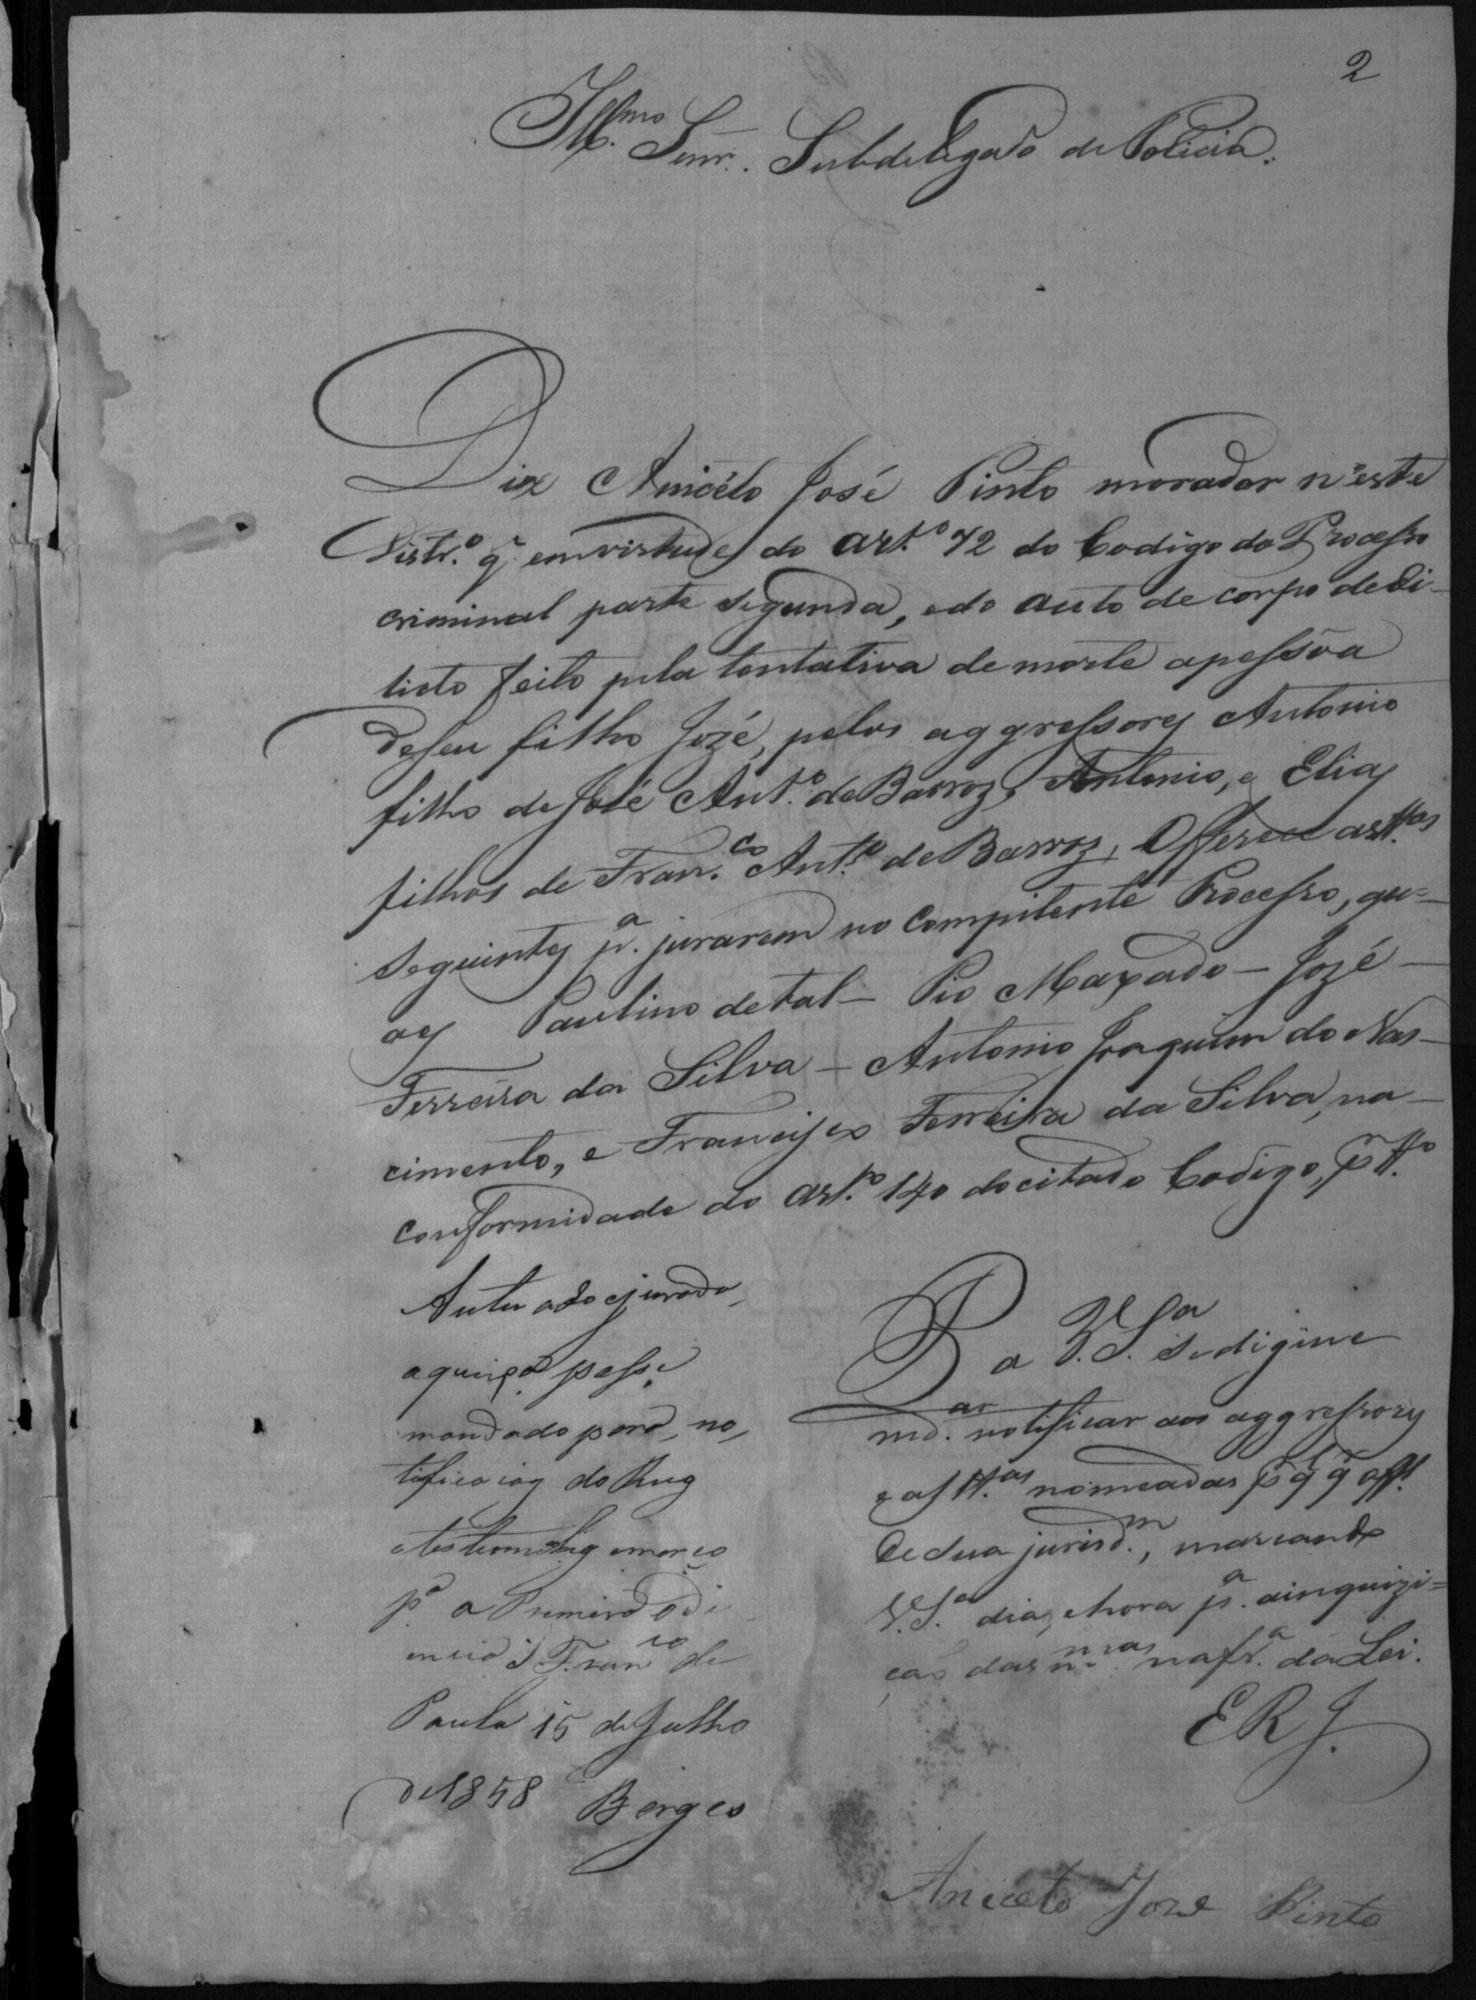 2
Illmo. Senr. Subdelegado de Policia.
Diz Anicéto José Pinto morador n'este
Distr.o q̃ em virtude do art.o 72 do Codigo do Processo
criminal parte segunda, e do auto de corpo de di-
licto feito pela tentativa de morte a pessôa
de seu filho Jozé, pelos aggressores Antonio
filho de José Ant.o de Barros, Antonio, e Elias
filhos de Fran.co Ant.o de Barros, Offerece as tt.as
seguintes p.a jurarem no compitente Processo, qu=
aes Paulino de tal - Pio Maxado - Jozé -
Ferreira da Silva - Antonio Joaquim do Nas-
cimento, e Francisco Ferreira da Silva, na -
conformidade do art.o 140 do citado Codigo, p tt.o
P a V.S.a se digne
mdar. notificar aos aggressores
e as tt.as nomeadas p
de sua jurisd.m, marcando
V.S.a dia, e hora p.a a inquizi=
ção das m.mas na fr.a da Lei.
E R J.
Aniceto Joze Pinto
Autuado e jurado
a queixa passe
mandado para no
tificação do Reus
e testemunhas e marco
p.a a Primeira Odi
encia S Fran.co de
Paula 15 de Julho
de 1858 Borges